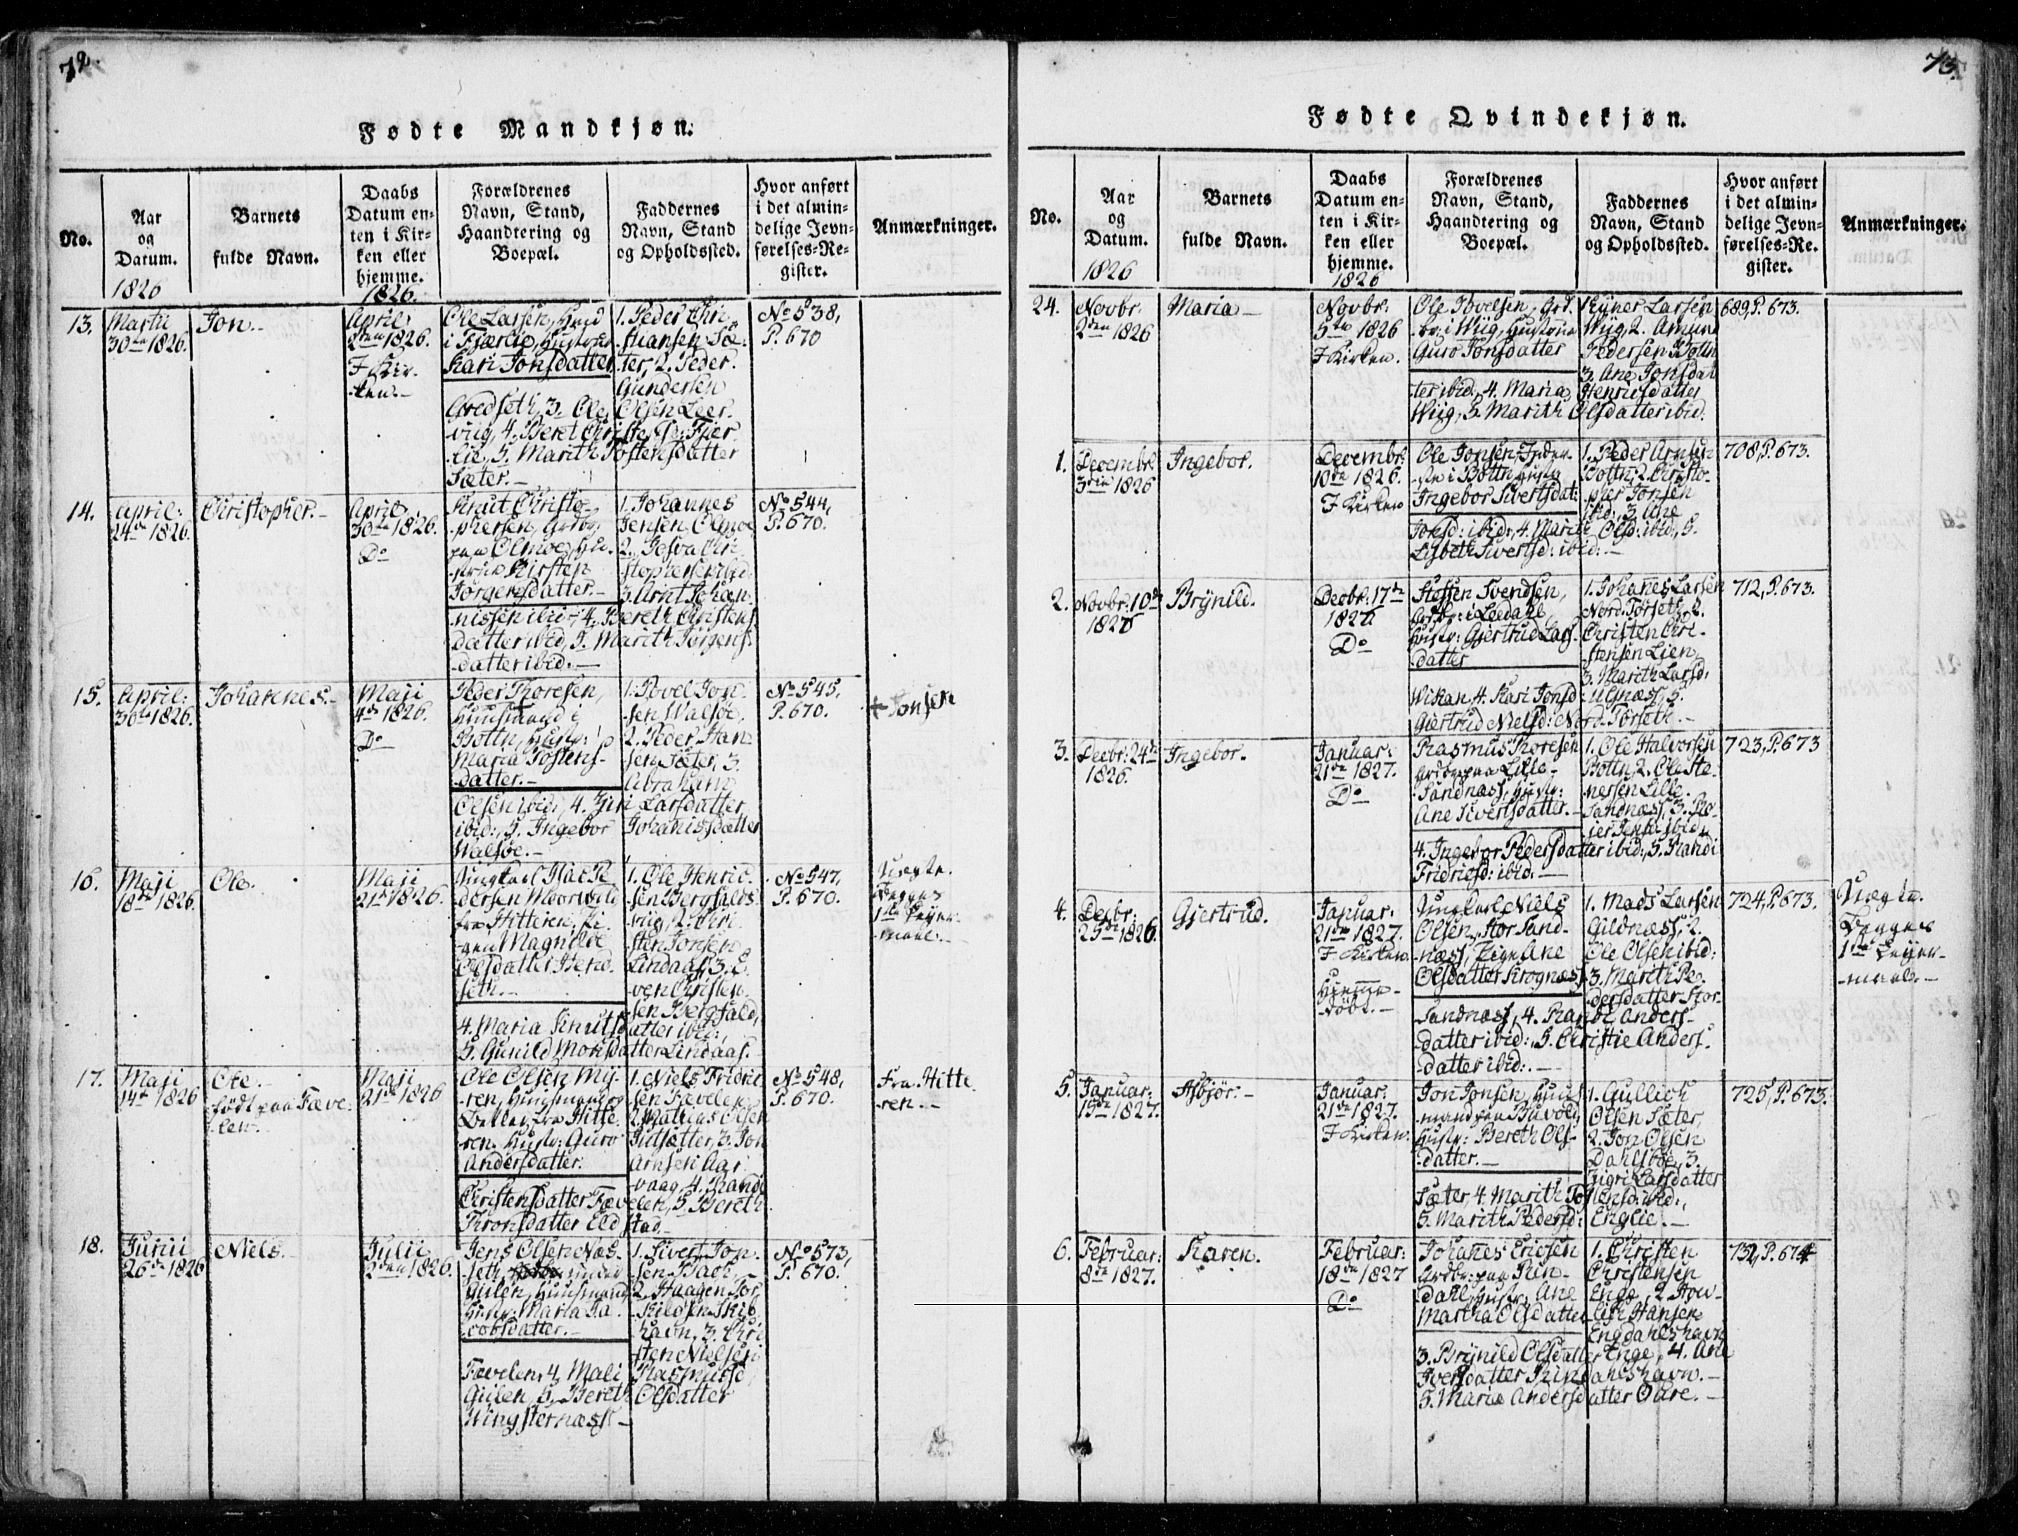 72.
Fødte Mandkjøn.
No.
Aar
og
Datum.
1826
Barnets
fulde Navn.
Daabs
Datum en-
ten i Kir-
ken eller
hjemme.
1826.
Forældrenes
Navn, Stand,
Haandtering og
Boepæl.
Faddernes
Navn, Stand
og Opholdssted.
Hvor anført
i det almin-
delige Jevn-
førelses-Re-
gister.
Anmærkninger.
13.
Martii
30te 1826.
Jon.
April:
2den 1826.
I Kir-
ken.
Ole Larsen,
i Fjærlie,
Kari Jonsdatter
1. Peder Chri-
stiansen Sæ-
ter, 2. Peder
Gundersen
Gredseth, 3. Ole Olsen Leer-
viig, 4. Beret Fjer-
lie, 5. Marith Tostensdatter
Sæter.
No 538,
P. 670
14.
April:
24de 1826.
Christopher.
April:
30te 1826.
Do
Knut Christo-
phersen, Grdbr.
paa Olmoe, Hu-
Kirsten
Jørgensdatter.
1. Johannes
Jensen Olmoe
2. Chri-
stophersen ibid.
3. Arnt Johan-
nissen ibid., 4. Bereth Christens-
datter ibid, 5. Marith Jørgens-
datter ibid.
No 544,
P. 670.
15.
April:
30te 1826.
Johannes.
Maji
4de 1826.
Do
Peder Thoresen,
Huusmand i
Bottn, Hustr:
Maria Tostens-
datter.
1. Povel Jon-
sen Walsøe,
2. Peder Han-
sen Sæter, 3.
Abraham
Olsen ibid, 4. Larsdatter
ibid:, 5. Ingebor Johanisdatter
Walsøe.
No 545,
P. 670.
+ Jonsen
16.
Maji
18de 1826.
Ole.
Maji
21de 1826.
Ungkarl Pe-
dersen
fra Hitteren, Pi-
gen Magnilde
Olsdatter Bend-
seth.
1. Ole Henric-
sen Bergfalds-
viig, 2. Chri-
sten Jonsen
Lindaas, 3.
ven Christen-
sen Bergfald,
4. Maria Knutsdatter ibid.,
5. Gunild Monsdatter Lindaas.
No 547,
P. 670.
Uægte.
Begges
1ste Leyer-
maal.
17.
Maji
14de 1826
Ole.
født paa Fæve-
len.
Maji
21de 1826
Ole Olsen My-
ren, Huusmand og
fra Hitte-
ren. Hustr: Guro
Andersdatter.
1. Niels Fridric-
sen Fævelen,
2. Mathias Olsen
3. Jon
Arnsen Aar-
vaag, 4. Randi
Christensdatter Fævelen, 5. Bereth
datter Eldstad.
No 548,
P. 670.
Fra Hitte-
ren.
18.
Junii
26de 1826
Niels.
Julii
2den 1826.
Jens Olsen Næs-
seth, under
Gulen, Huusmand,
Hustr: Maria Ja-
cobsdatter.
1. Sivert Jon-
sen Bach,
2. Haagen Tor-
kildsen Skib-
havn, 3. Chri-
sten Nielsen
Fævelen, 4. Mali Rasmusd.
Gulen, 5. Bereth Olsdatter
No 573,
P. 670.
73.
Fødte Qvindekjøn.
No.
Aar
og
Datum.
1826
Barnets
fulde Navn.
Daabs
Datum en-
ten i Kir-
ken eller
hjemme.
1826
Forældrenes
Navn, Stand,
Haandtering og
Boepæl.
Faddernes
Navn, Stand
og Opholdssted.
Hvor anført
i det almin-
delige Jevn-
førelses-Re-
gister.
Anmærkninger.
24.
Novbr.
2den 1826
Maria
Novbr.
5te 1826
I Kirken.
Ole Povelsen, Grd-
br. i Wiig, Hustrue
Guro Jonsdatter
1. Ejner Larsen
Wiig, 2. Amund
Pedersen Bottn
3. Ane Jonsdat-
ter ibid:, 4. Maria Henricsdatter
Wiig, 5. Marith Olsdatter ibid.
689, P. 673.
1.
Decembr.
3die 1826
Ingebor.
Decembr:
10de 1826.
I Kirken
Ole Jonsen, Inder-
ste i Bottn, Hustr:
Ingebor Sivertsdat:
1. Peder Arnsen
Bottn, 2. Christo-
pher Jonsen
ibid:, 3. Ane
Jonsd: ibid:, 4. Marith Olsd: ibid., 5.
Lisbeth Sivertsd: ibid:
708, P. 673.
2.
Novbr: 10de
1826
Brynild.
Decbr. 17de
1826
Do
Stossen Svendsen,
Grdbr: i Leedahl,
Hustr: Gjertrud Lars-
datter
1. Johanes Larsen
Nord-Torseth, 2.
Christen Chri-
stensen Lien,
3. Marith Larsd:
Wikan, 4. Kari Jonsd: Ulgnæss, 5.
Gjertrud Nielsd: Nord-Torseth.
712, P. 673.
3.
Decbr: 24de
1826.
Ingebor.
Januar:
21de 1827.
Do
Rasmus Thoresen
Grdbr: paa Lille-
Sandnæss, Hustr:
Ane Sivertsdatter.
1. Ole Halvorsen
Bottn, 2. Ole Ste-
nersen Lille-
Sandnæss, 3. Pe-
ter Jensen ibid.
4. Ingebor Pedersdatter ibid:, 5. Randi
Fridricsd: ibid:
723, P. 673
4.
Decbr:
25de 1826.
Gjertrud.
Januar:
21de 1827.
I Kirken
Hjemme-
døbt.
Ungkarl Niels
Olsen, Stor-Sand-
næss, Pige Ane
Olsdatter Krognæss.
1. Mads Larsen
Gildnæss, 2.
Ole Olsen ibid:
3. Marith Pe-
dersdatter Stor-
Sandnæss, 4. Randi Anders-
datter ibid:, 5. Christie Anders-
datter ibid:.
724, P. 673.
Uægte.
Begges
1ste Leyer-
maal.
5.
Januar:
15de 1827.
Asbjør.
Januar:
21de 1827.
I Kirken.
Jon Jonsen, Huus-
mand paa Buvold,
Hustr: Bereth Ols-
datter.
1. Gullich
Olsen Sæter,
2. Jon Olsen
Dahlsbøe, 3.
Ingri Larsdatter
Sæter, 4. Marith Tostensd: ibid:,
5. Marith Pedersd: Englie.
725, P. 673.
6.
Februar:
8de 1827.
Karen.
Februar:
18de 1827
Do
Johanes Ericsen
Grdbr: paa Rin-
dahl, Hustr, Ane
Martha Olsdatter
1. Christen
Christensen
Enge, 2. How-
ich Hansen
Engdahlshavn
3. Brynild Olsdatter Enge, 4. Ane
Iversdatter Rindahlshavn.
5. Maria Andersdatter Odre.
732, P. 674